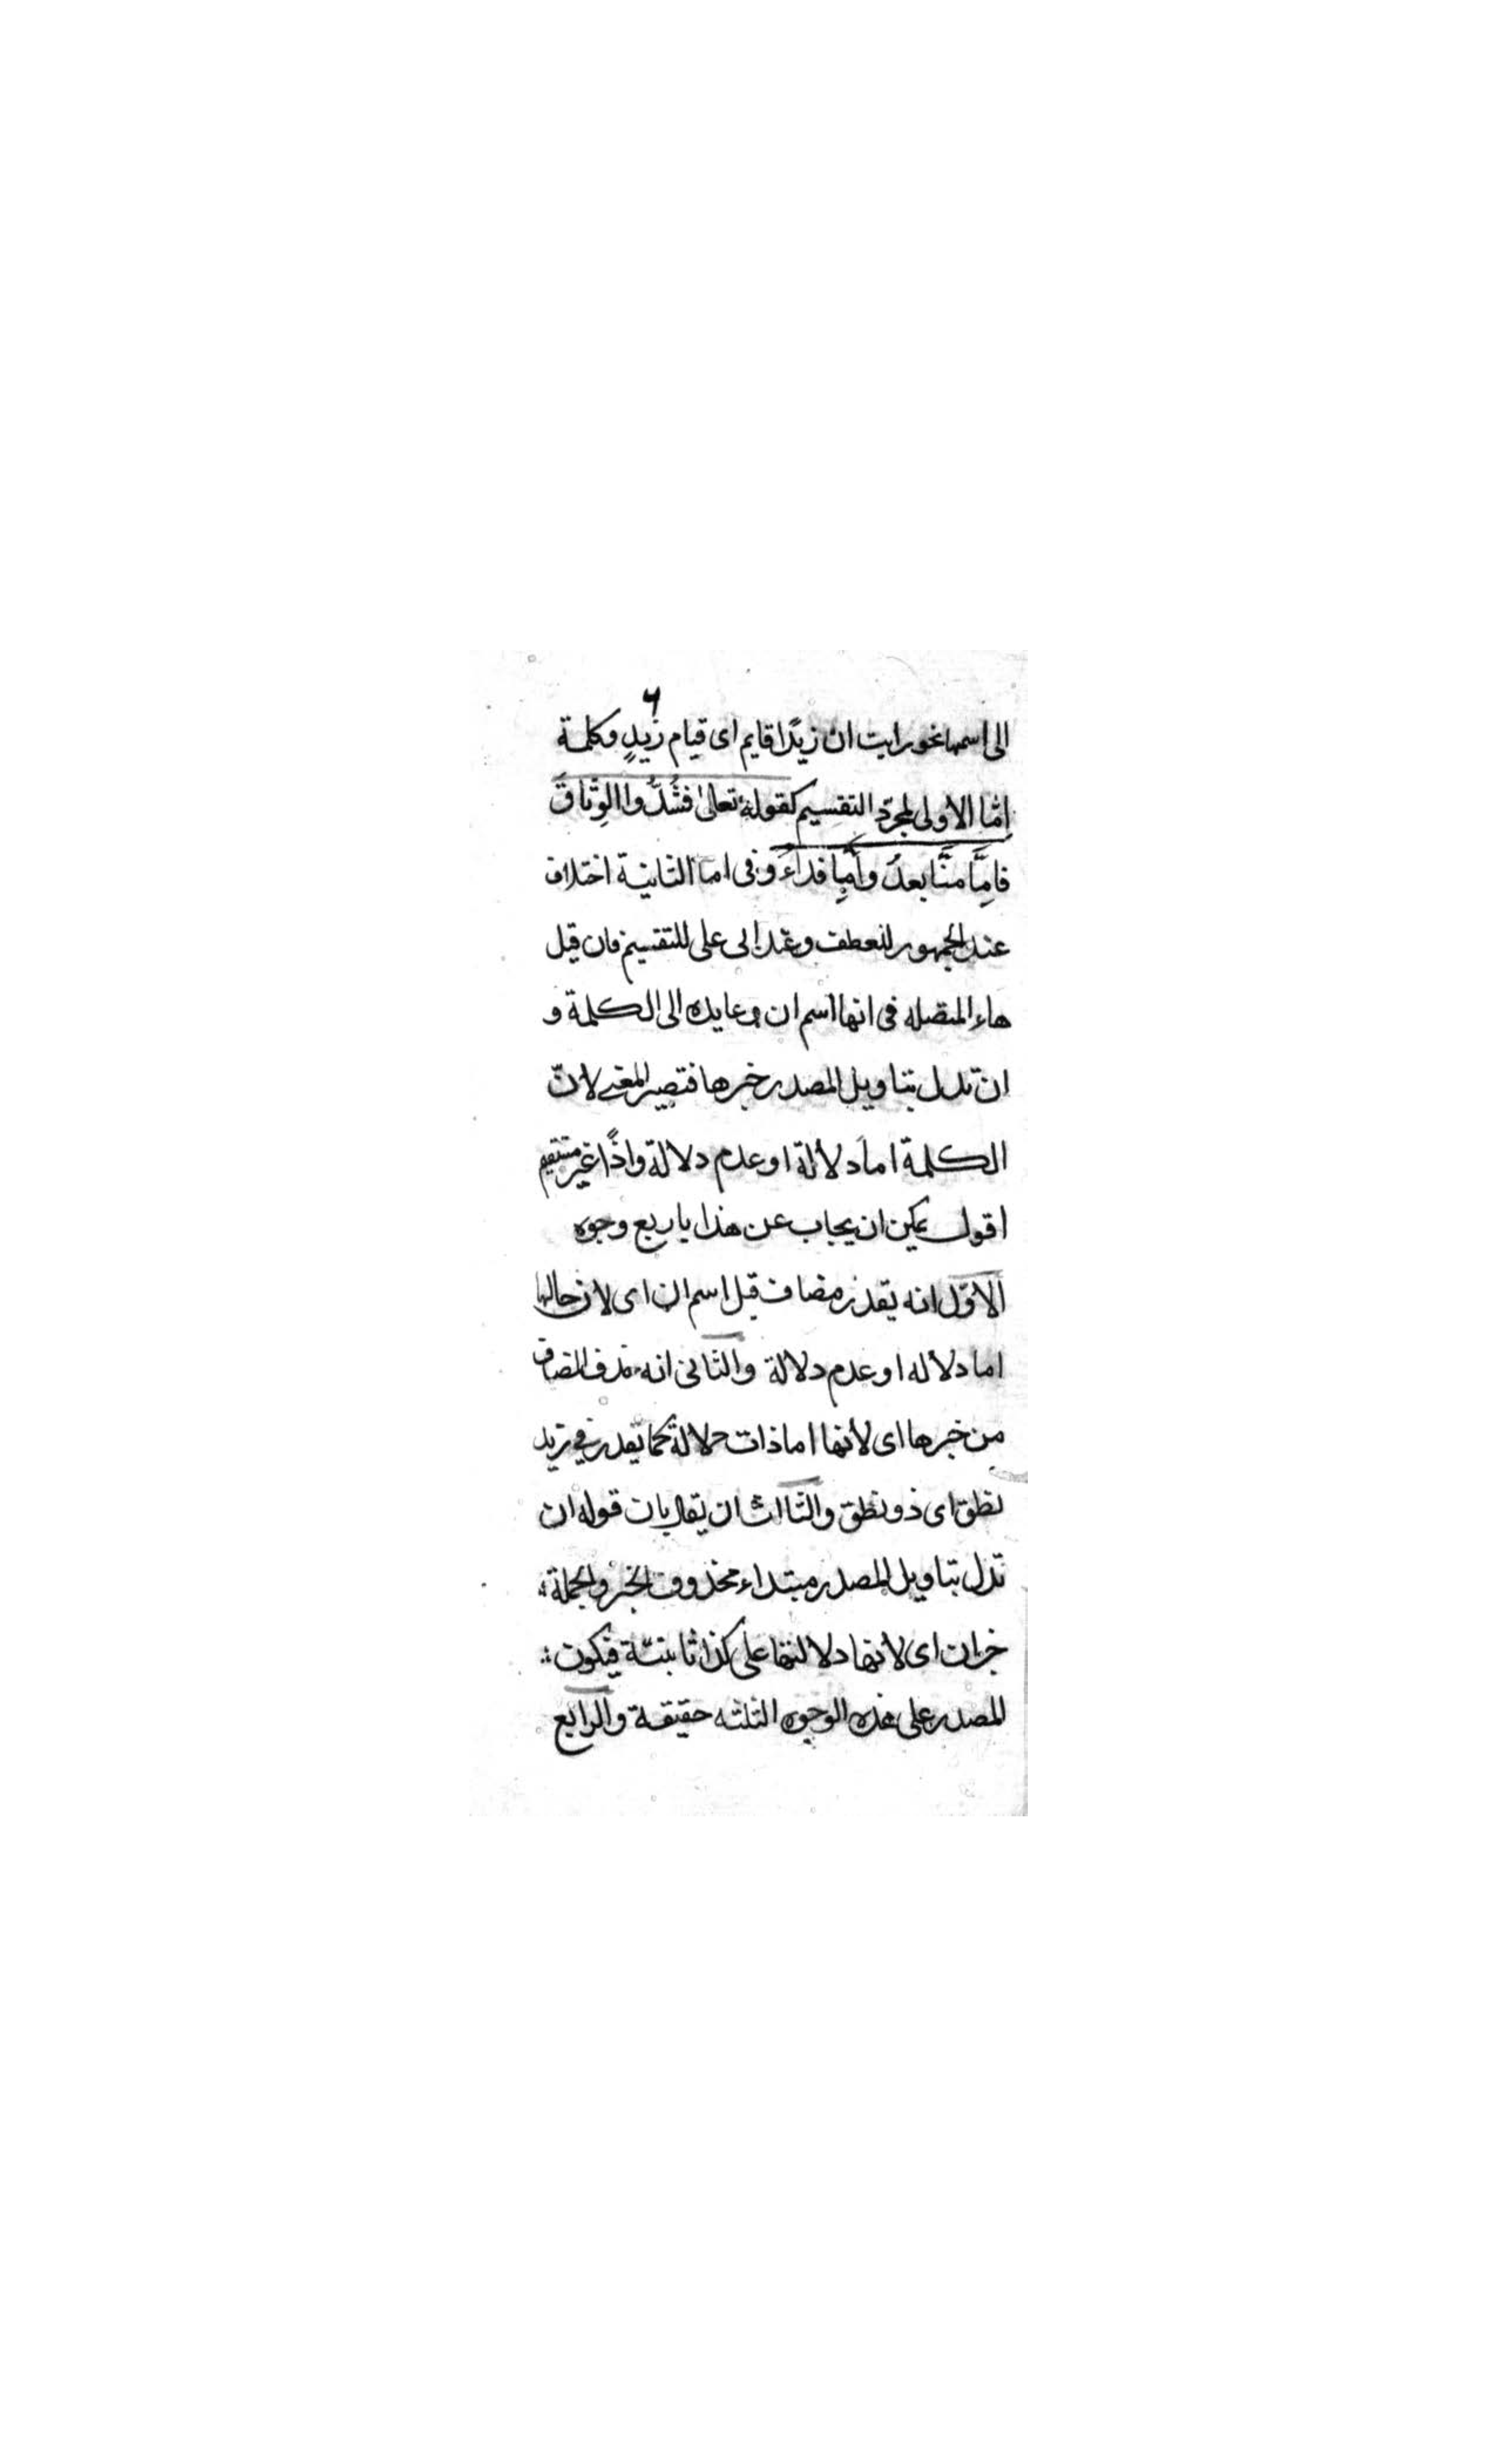 ٦
الى اسمها نحو رايت ان زيدًا قايم اى قيام زيدٍ وكلمة
اِمّا الاولى لمجرّد التقسيم كقوله تعالىٰ فشُدُّوا الوِثاقَ
فاِمَّا منَّا بعدُ واِمّا فداءً وفى اما الثانية اختلاف
عند الجمهور للعطف وعند ابى على للتقسيم فان قيل
هاء المتصله فى انها اسم ان وعايده الى الكلمة و
ان تدل بتاويل المصدر خبرها فتصير المعنى لانّ
الكلمة اما دلالة او عدم دلالة واذًا غير مستقيم
اقول يمكن ان يجاب عن هذا باربع وجوه
الاوّل انه يقدر مضاف قبل اسم ان اى لان حالها
اما دلاله او عدم دلالة والثانى انه حذف المضاف
من خبرها اى لأنها اما ذات دلالة كما يقدر في زيد
نطق اى ذو نطق والثالث ان يقال بان قوله ان
تدل بتاويل المصدر مبتداء محذوف الخبر والجملة
خبران اى لانها دلالتها على كذا ثابتة فيكون
المصدر على هذه الوجوه الثلثه حقيقة والرابع